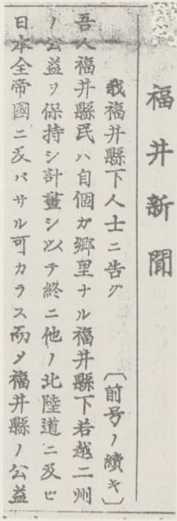 福井新聞
我福井縣下人士ニ告グ 〔前号ノ續キ〕
吾人福井縣民ハ自個ガ郷里ナル福井縣下若越二州
ノ公益ヲ保持シ計畫シ以テ終ニ他ノ北陸道ニ及ビ
日本全帝國ニ及バサル可カラス而〆福井縣ノ公益